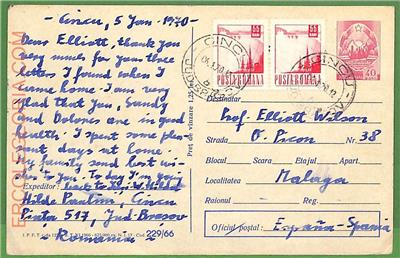 Cincu, 5 Jan - 1970 -
Dear Elliott, thank you
very much for your three
letters I found when I
came home. I am very
glad that you, Sandy
and Dolores are in good
health. I spent some pleas-
ant days at home.
My family send best wis-
hes to you. To-day I'm going
Expeditor: back to
Hilde Paulini, Cincu
Piața 517, Jud. Brasov
Romania
229/66
Preț de vînzare 1,25 lei
CINCU
JUD. BRASOV
55
POSTA ROMANA
55
POSTA ROMANA
CINCU
40
Prof. Elliott Wilson
Strada D. Picon Nr. 38
Blocul Scara Etajul Apart.
Localitatea Malaga
Raionul Reg.
Oficiul poștal: España - Spania
ERCOLEGLORIA.COM